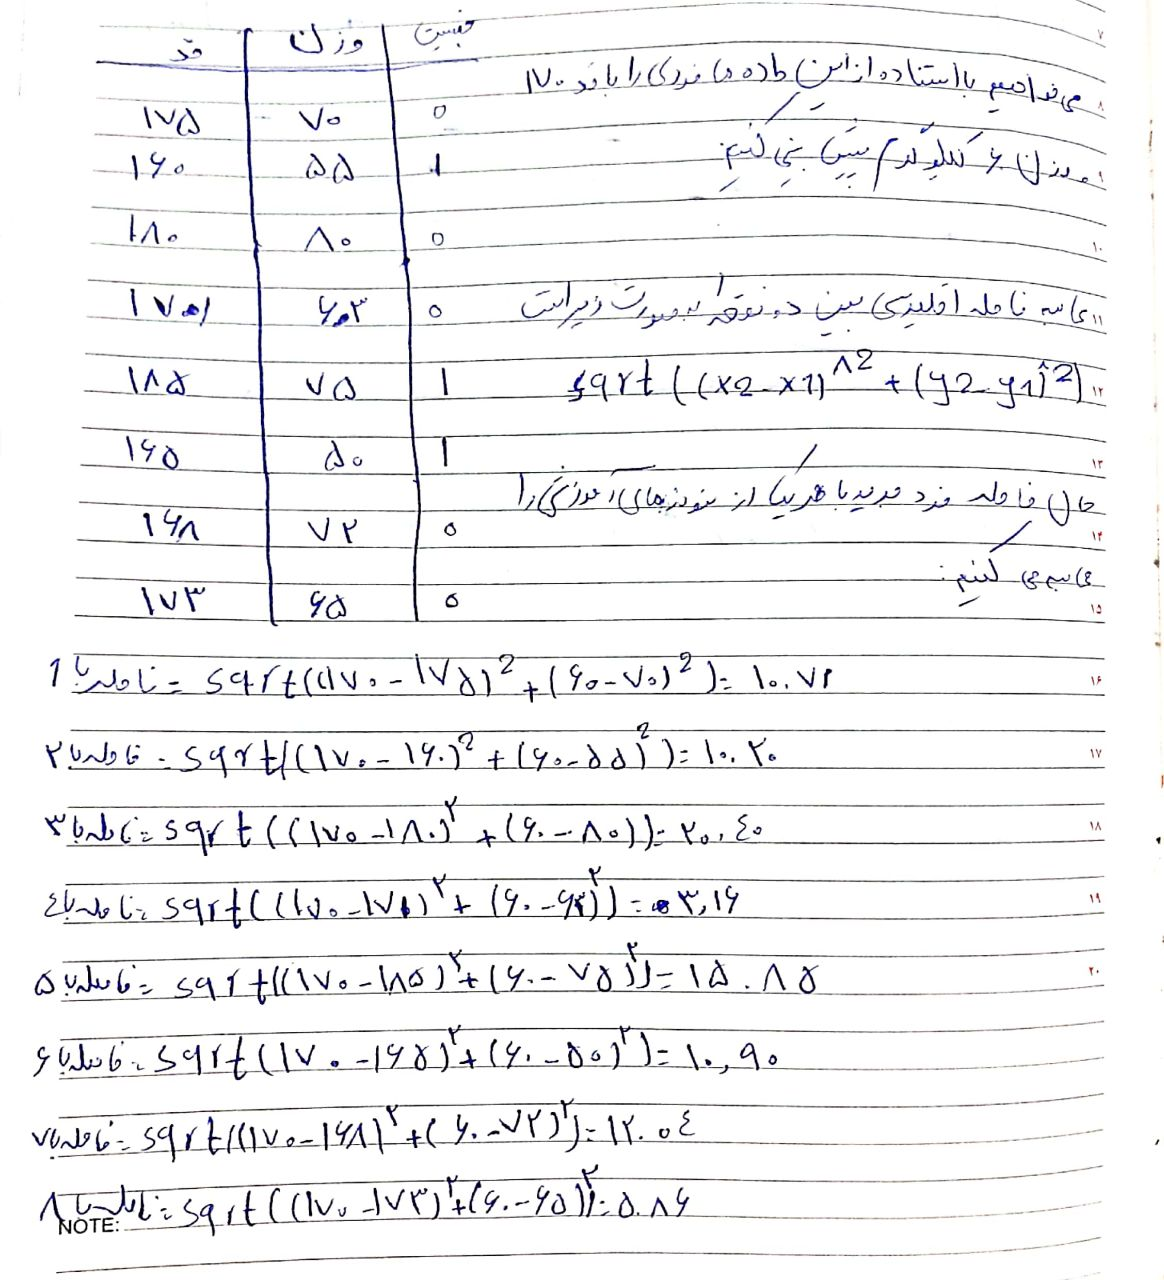 قد وزن جنسیت
۱۷۵ ۷۰ ۰
۱۶۰ ۵۵ ۱
۱۸۰ ۸۰ ۰
۱۷۰ ۶۰۳ ۰
۱۸۵ ۷۵ ۱
۱۶۵ ۵۰ ۱
۱۶۸ ۷۲ ۰
۱۷۳ ۶۵ ۰
می خواهیم با استفاده از این داده ها فردی را با قد ۱۷۰
و وزن ۶۰ کیلوگرم پیش بینی کنیم:
محاسبه فاصله اقلیدسی بین دو نقطه به صورت زیر است
sqrt((x2-x1)^2 + (y2-y1)^2)
حال فاصله فرد جدید با هر یک از نمونه‌های آموزشی را
محاسبه می کنیم:
فاصله با 1 = sqrt((۱۷۰ - ۱۷۵)² + (۶۰-۷۰)²) = ۱۰.۷۲
فاصله با ۲ = sqrt((۱۷۰ - ۱۶۰)² + (۶۰-۵۵)²) = ۱۰.۲۰
فاصله با ۳ = sqrt((۱۷۰ - ۱۸۰)² + (۶۰-۸۰)) = ۲۰.٤۰
فاصله با ٤ = sqrt((۱۷۰-۱۷۱)² + (۶۰-۶۳)²) = ۳,۱۶
فاصله با ۵ = sqrt((۱۷۰-۱۸۵)² + (۶۰-۷۵)²) = ۱۵.۸۵
فاصله با ۶ = sqrt(۱۷۰-۱۶۵)² + (۶۰-۵۰)²) = ۱۰,۹۰
فاصله با ۷ = sqrt((۱۷۰-۱۶۸)² + (۶۰-۷۲)²) = ۱۲.۰٤
فاصله با ۸ = sqrt((۱۷۰-۱۷۳)² + (۶۰-۶۵))² = ۵.۸۶
NOTE:
۷
۸
۹
۱۰
۱۱
۱۲
۱۳
۱۴
۱۵
۱۶
۱۷
۱۸
۱۹
۲۰